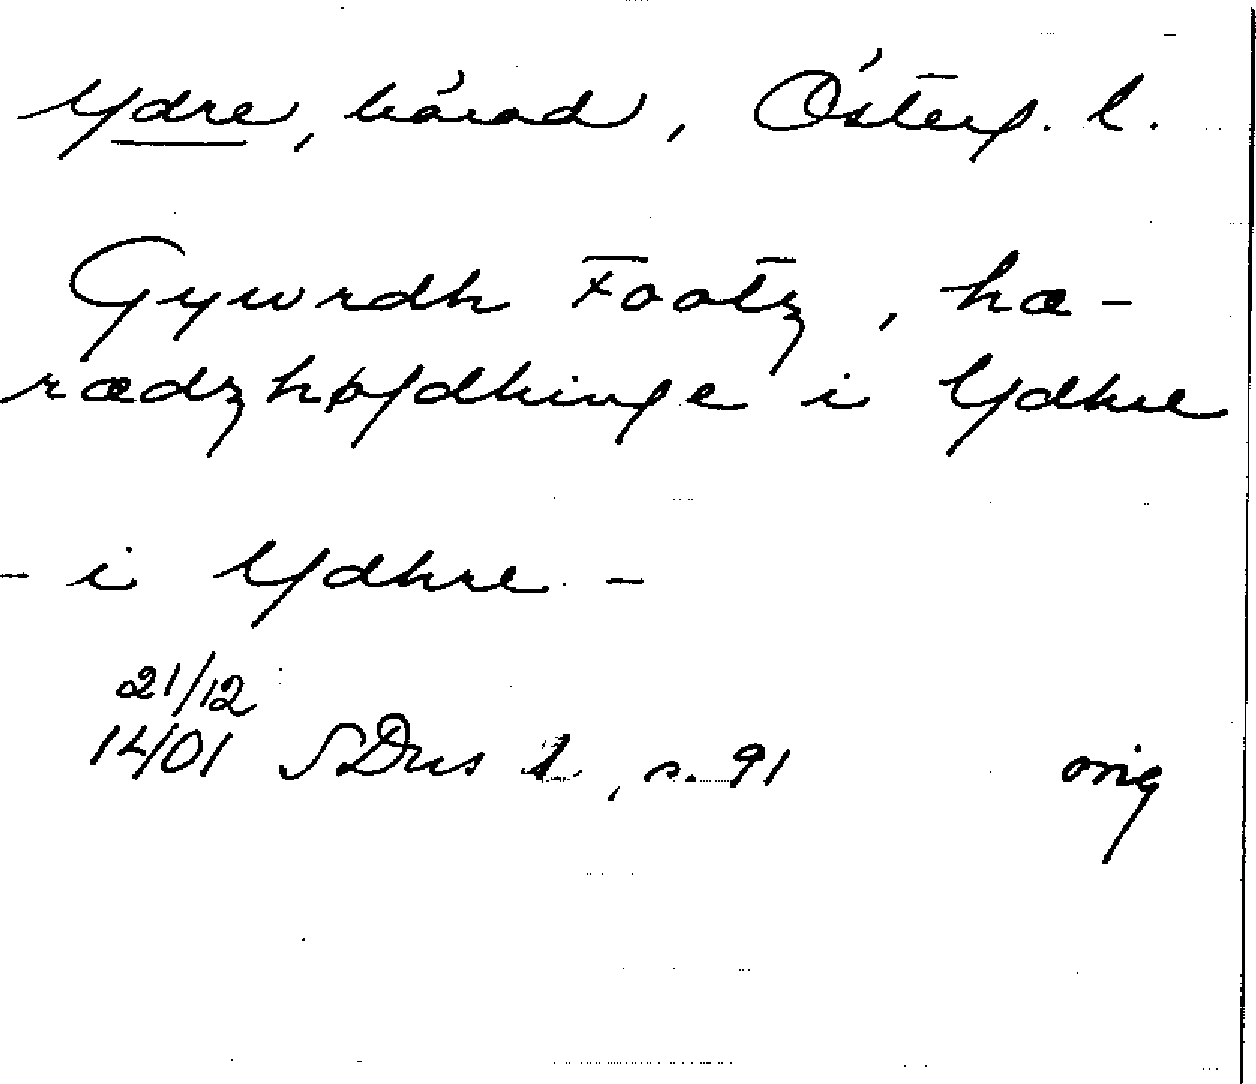 Ydre, härad, Österg. l.
Gywrdh Footz, hæ-
rædzhøfdhinge i Ydhre
- i Ydhre -
21/12
14/01 SDns 1, s. 91 orig